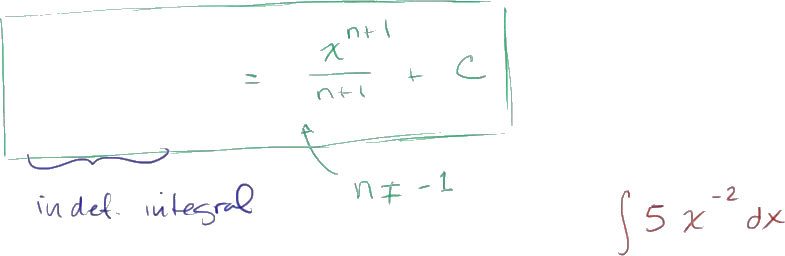 = x^{n+1}/(n+1) + C
n ≠ -1
indef. integral
∫ 5 x^{-2} dx